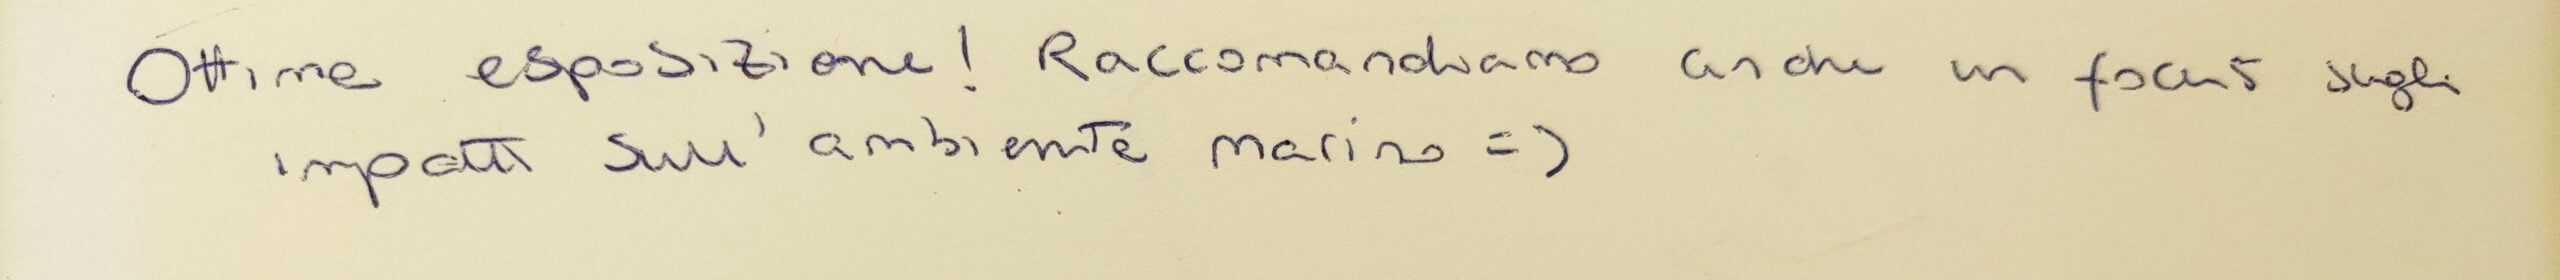 Ottima esposizione! Raccomandiamo anche un focus sugli
impatti sull'ambiente marino =)